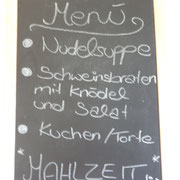 Menü
Nudelsuppe
Schweinsbraten
mit Knödel
und Salat
Kuchen/Torte
MAHLZEIT...